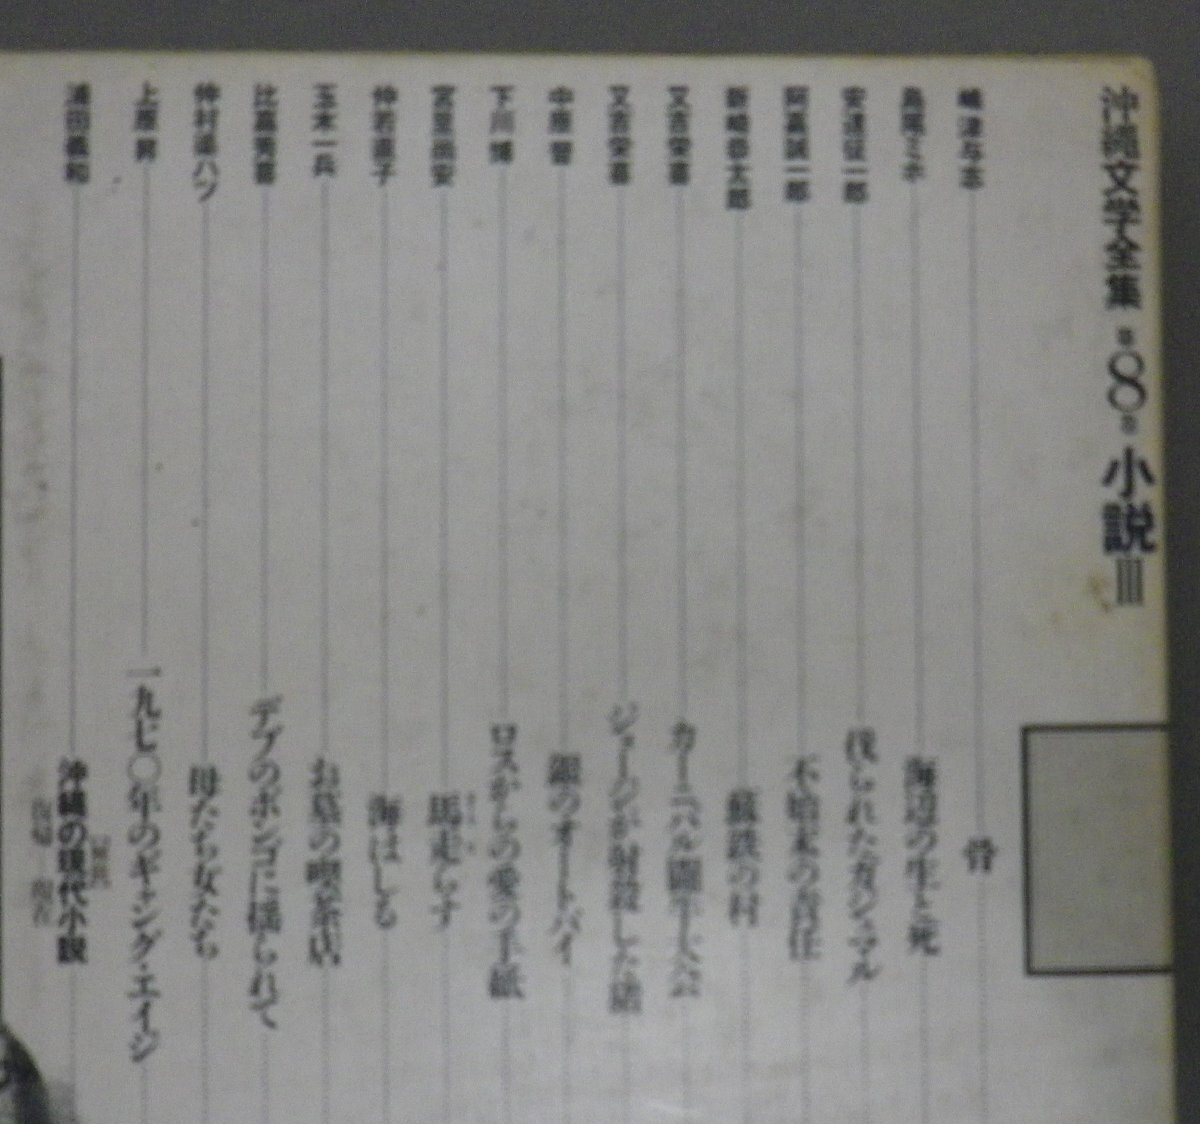 沖縄文学全集 第8巻 小説III
嶋津与志 骨
島尾ミホ 海辺の生と死
安達征一郎 伐られたガジュマル
阿嘉誠一郎 不始末の責任
新崎恭太郎 蘇鉄の村
又吉栄喜 カーニバル闘牛大会
又吉栄喜 ジョージが射殺した猪
中原晋 銀のオートバイ
下川博 ロスからの愛の手紙
宮里尚安 馬走らす
仲若直子 海はしる
玉木一兵 お墓の喫茶店
比嘉秀喜 デブのボンゴに揺られて
仲村渠ハツ 母たち女たち
上原昇 一九七〇年のギャング・エイジ
浦田義和 [解説]沖縄の現代小説
復帰―現在